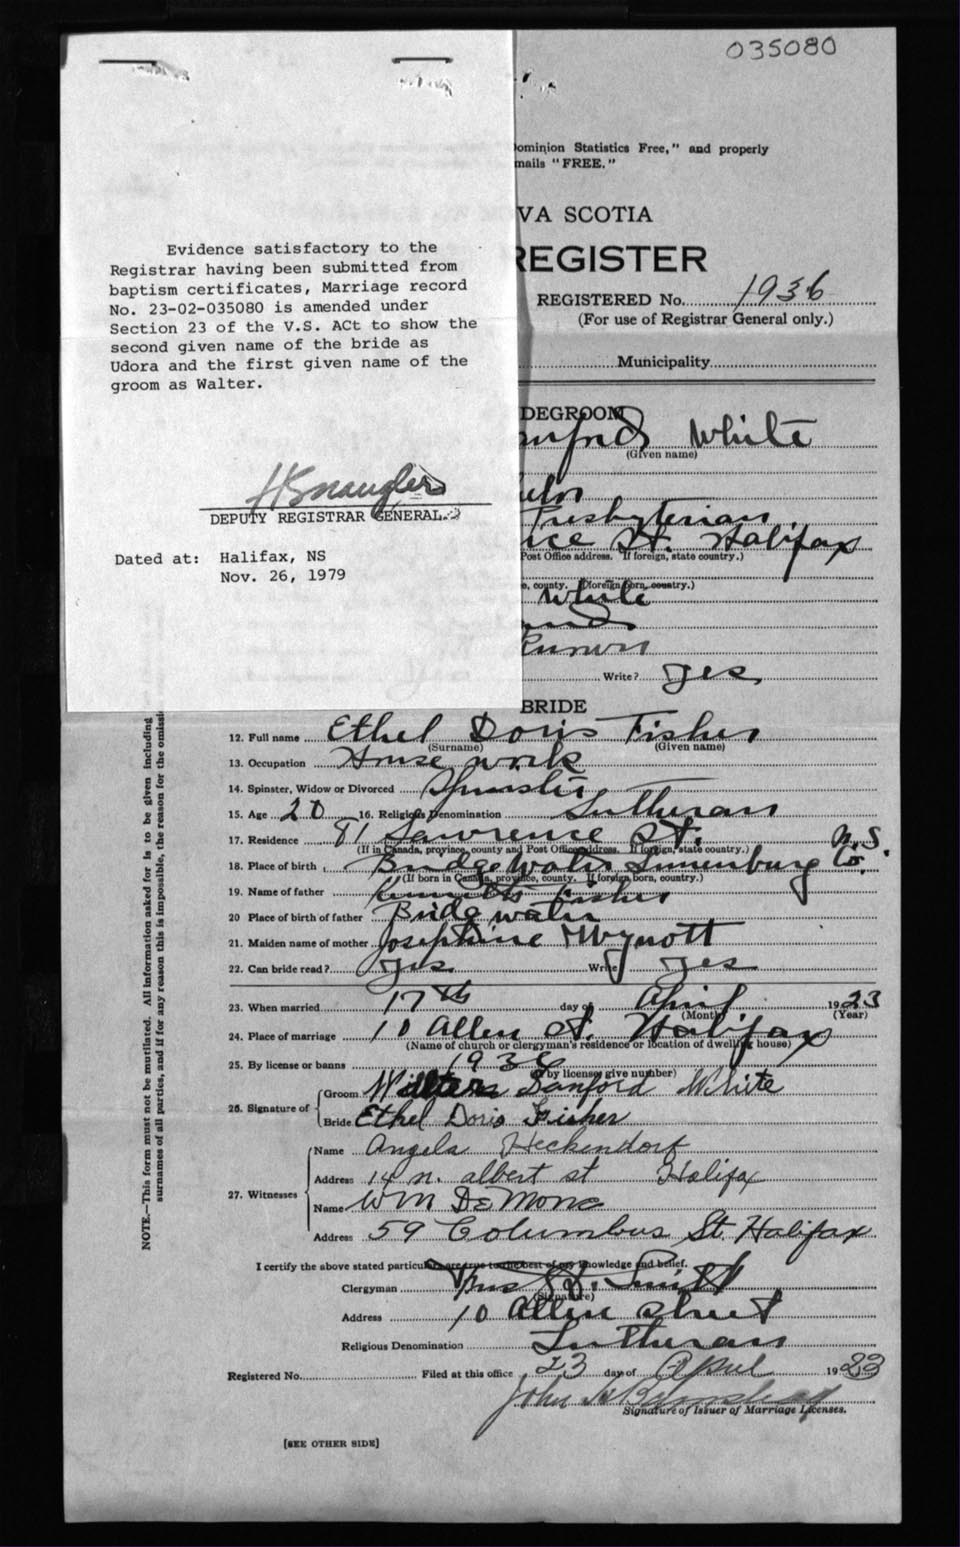 035080
Dominion Statistics Free," and properly
mails "FREE."
VA SCOTIA
REGISTER
REGISTERED No. 1936
(For use of Registrar General only.)
Municipality
Evidence satisfactory to the
Registrar having been submitted from
baptism certificates, Marriage record
No. 23-02-035080 is amended under
Section 23 of the V.S. ACt to show the
second given name of the bride as
Udora and the first given name of the
groom as Walter.
DEPUTY REGISTRAR GENERAL.
Dated at: Halifax, NS
Nov. 26, 1979
DEGROOM
White
(Given name)
Presbyterian
St. Halifax
Post Office address. If foreign, state country.)
e, county. (foreign born, country.)
White
Write? Yes
BRIDE
12. Full name Ethel Doris Fisher
(Surname) (Given name)
13. Occupation House work
14. Spinster, Widow or Divorced Spinster
15. Age 20 16. Religious Denomination Lutheran
17. Residence 81 Lawrence St. N.S.
(If in Canada, province, county and Post Office address. If foreign, state country.)
18. Place of birth Bridgewater Lunenburg Co.
(If born in Canada, province, county. If foreign born, country.)
19. Name of father Kenneth Fisher
20 Place of birth of father Bridgewater
21. Maiden name of mother Josephine Wynott
22. Can bride read? Yes Write Yes
23. When married 17th day of April 1923
(Month) (Year)
24. Place of marriage 10 Allen St. Halifax
(Name of church or clergyman's residence or location of dwelling house)
25. By license or banns 1936
(by license, give number)
26. Signature of Groom Walter Sanford White
Bride Ethel Doris Fisher
27. Witnesses Name Angela Heckendorf
Address 14 N. albert st Halifax
Name Wm DeMone
Address 59 Columbus St. Halifax
I certify the above stated particulars are true to the best of my knowledge and belief.
Clergyman
(Signature)
Address 10 Allen street
Religious Denomination Lutheran
Registered No. Filed at this office 23 day of April 1923
John
Signature of Issuer of Marriage Licenses.
[SEE OTHER SIDE]
NOTE.—This form must not be mutilated. All information asked for is to be given including
surnames of all parties, and if for any reason this is impossible, the reason for the omissi